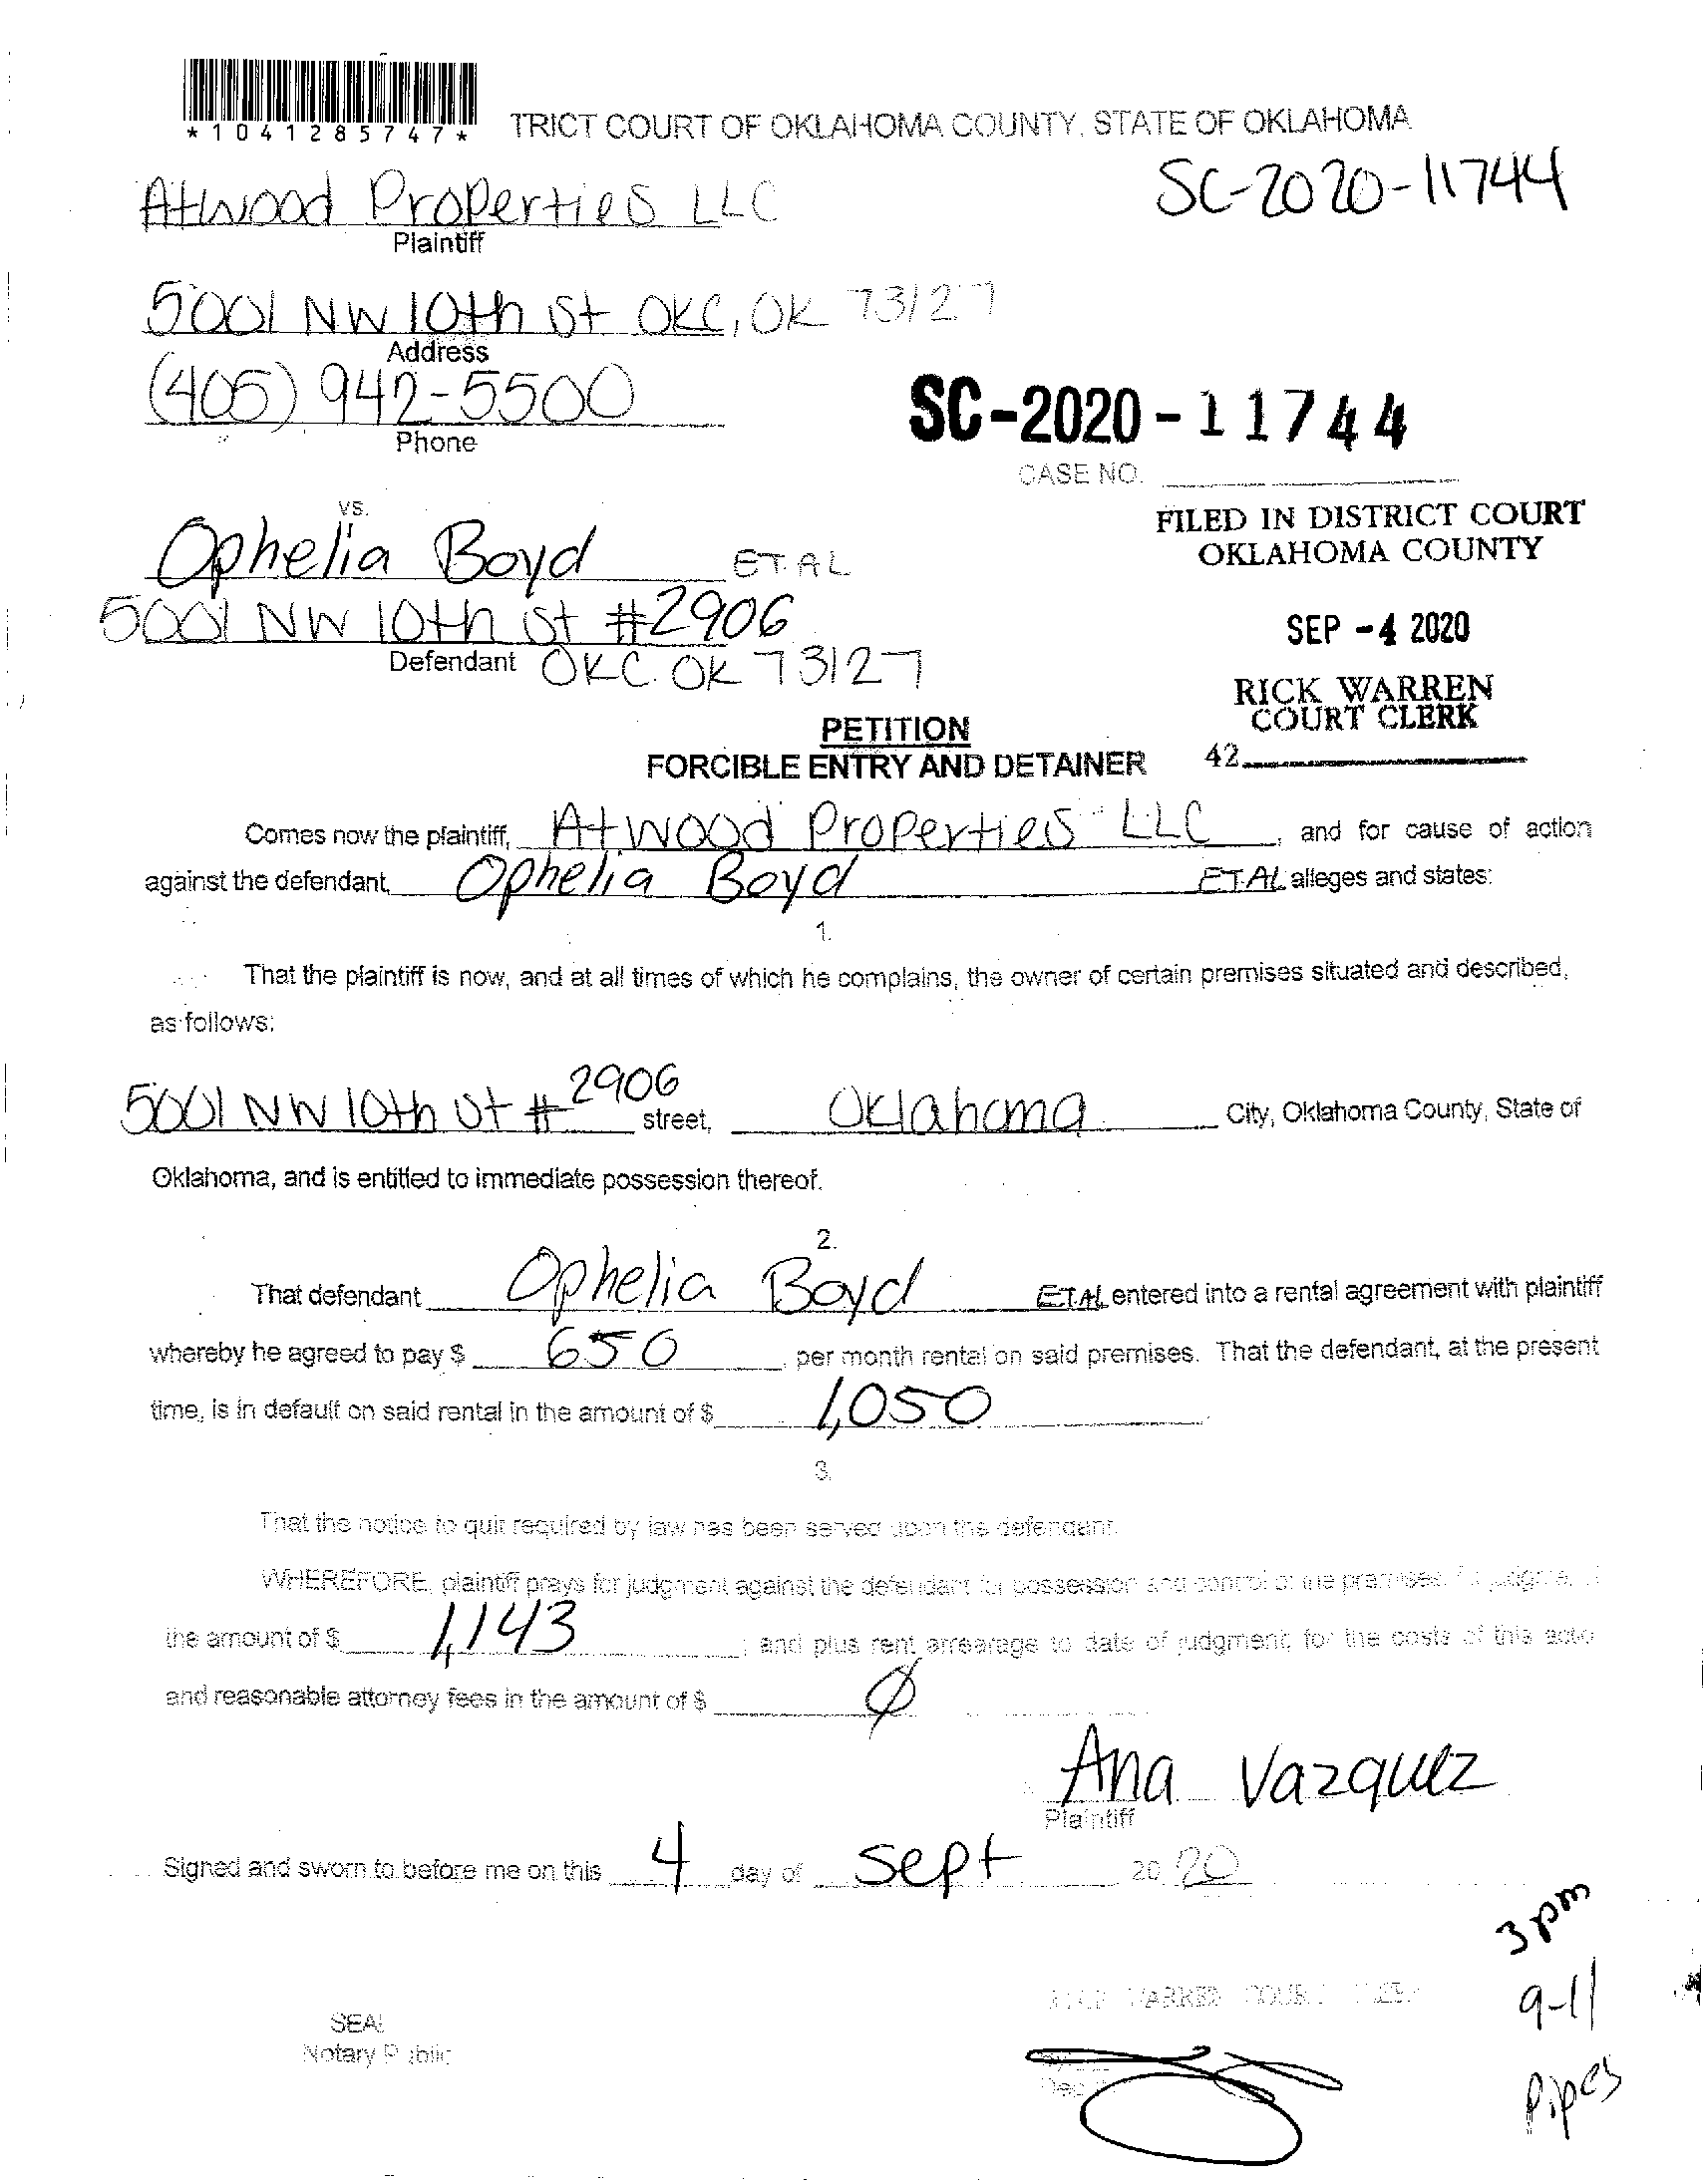 *1041285747*
TRICT COURT OF OKLAHOMA COUNTY, STATE OF OKLAHOMA
Atwood Properties LLC
SC-2020-11744
Plaintiff
5001 NW 10th St OKC, OK 73127
Address
(405) 942-5500
Phone
SC-2020-11744
CASE NO.
vs.
FILED IN DISTRICT COURT
OKLAHOMA COUNTY
Ophelia Boyd ET AL
5001 NW 10th St #2906
SEP -4 2020
Defendant OKC. OK 73127
RICK WARREN
COURT CLERK
42
PETITION
FORCIBLE ENTRY AND DETAINER
Comes now the plaintiff, Atwood Properties LLC, and for cause of action
against the defendant, Ophelia Boyd ET.AL alleges and states:
1.
That the plaintiff is now, and at all times of which he complains, the owner of certain premises situated and described,
as follows:
5001 NW 10th St # 2906 street, Oklahoma City, Oklahoma County, State of
Oklahoma, and is entitled to immediate possession thereof.
2.
That defendant Ophelia Boyd ET.AL entered into a rental agreement with plaintiff
whereby he agreed to pay $ 650 per month rental on said premises. That the defendant, at the present
time, is in default on said rental in the amount of $ 1,050
3.
That the notice to quit required by law has been served upon the defendant.
WHEREFORE, plaintiff prays for judgment against the defendant for possession and control of the premises,
the amount of $ 1,143; and plus rent arrearage to date of judgment; for the costs of this actio
and reasonable attorney fees in the amount of $ Ø
Ana Vazquez
Plaintiff
Signed and sworn to before me on this 4 day of Sept 20 20
3 pm
9-11
Pipes
SEAL
Notary Public